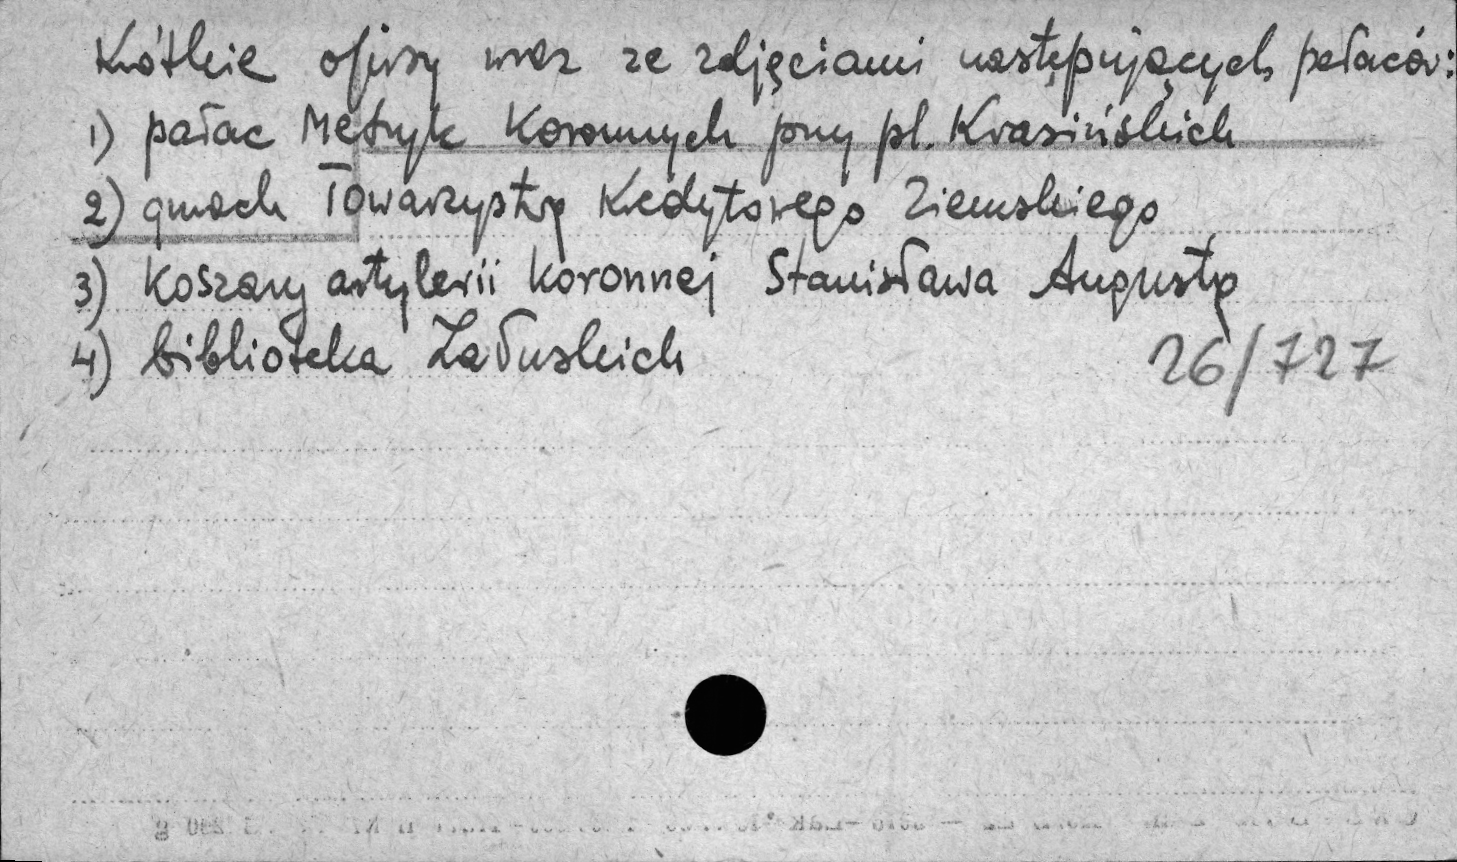 Krótkie opisy wraz ze zdjęciami następujących pałaców:
1) pałac Metryk Koronnych przy pl. Krasińskich
2) gmach Towarzystwa Kredytowego Ziemskiego
3) Koszary artylerii koronnej Stanisława Augusta
4) biblioteka Załuskich
26/727